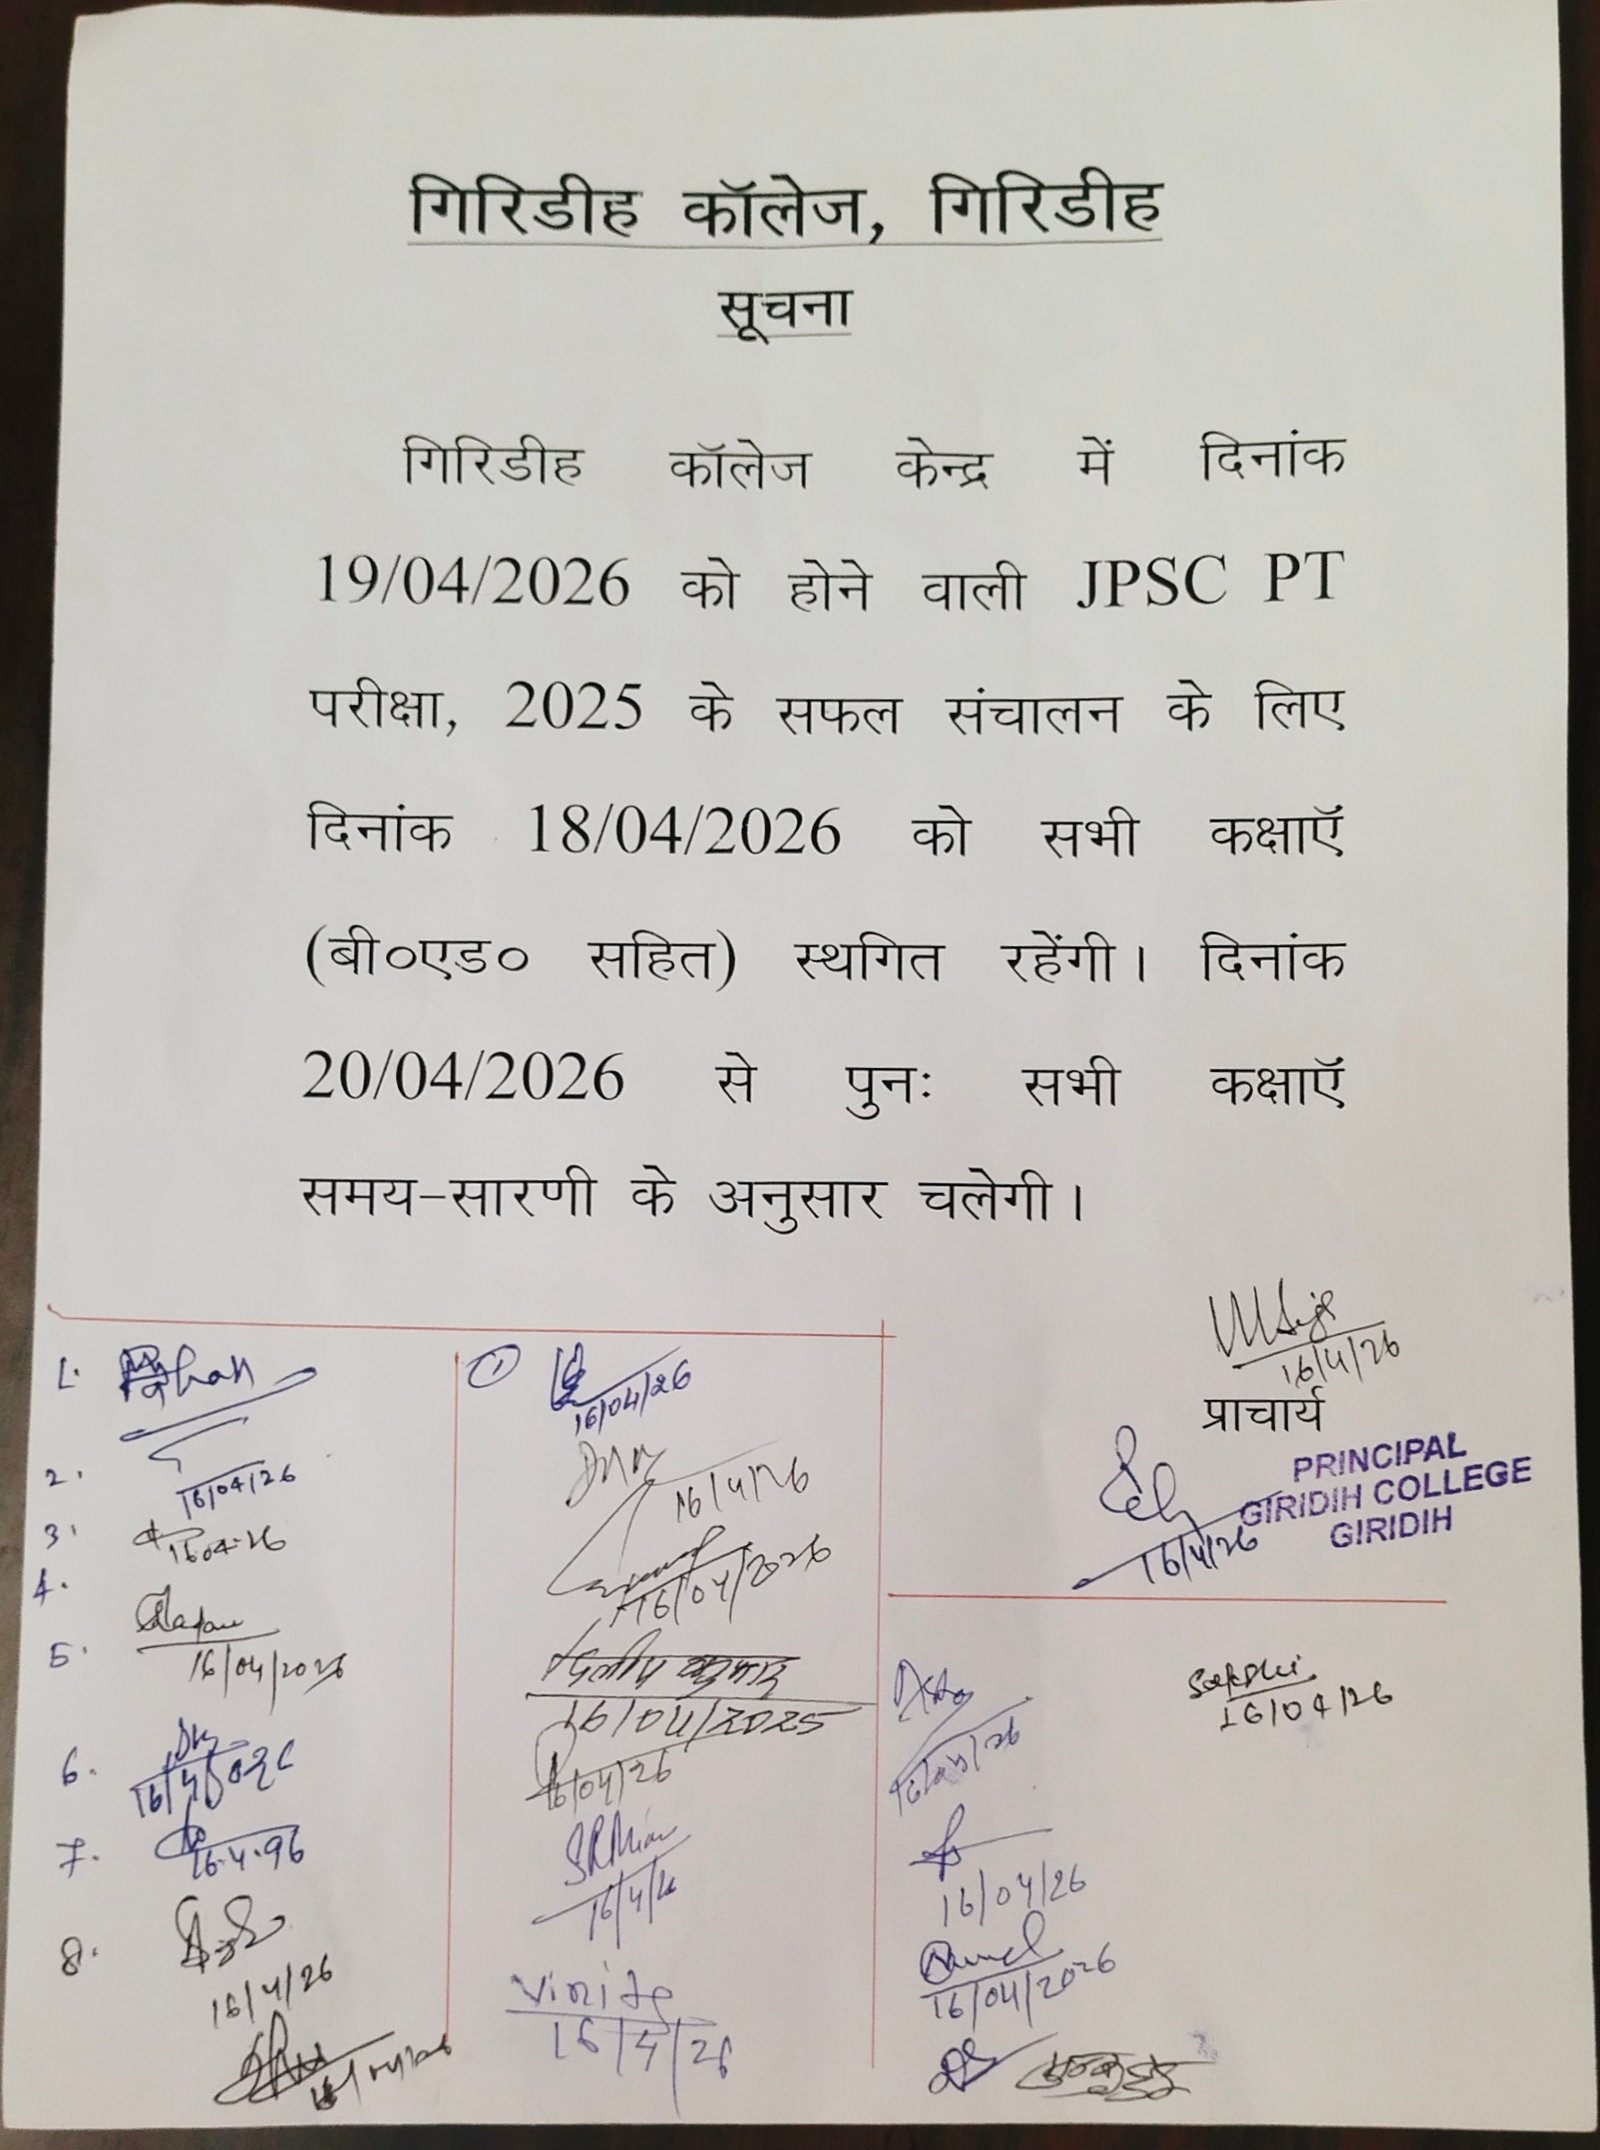 गिरिडीह कॉलेज, गिरिडीह
सूचना
गिरिडीह कॉलेज केन्द्र में दिनांक
19/04/2026 को होने वाली JPSC PT
परीक्षा, 2025 के सफल संचालन के लिए
दिनांक 18/04/2026 को सभी कक्षाऍ
(बी०एड० सहित) स्थगित रहेंगी। दिनांक
20/04/2026 से पुनः सभी कक्षाऍ
समय-सारणी के अनुसार चलेगी।
16/4/26
प्राचार्य
PRINCIPAL
GIRIDIH COLLEGE
GIRIDIH
16/4/26
1.
2.
16/04/26
3.
16.04.26
4.
5.
16/04/2026
6.
7.
16.4.96
8.
16/4/26
1
16/04/26
16/4/26
16/04/2026
दिलीप कुमार
16/04/2025
16/04/26
16/4/26
16/4/26
Sakshi
16/04/26
16/04/26
16/04/2026